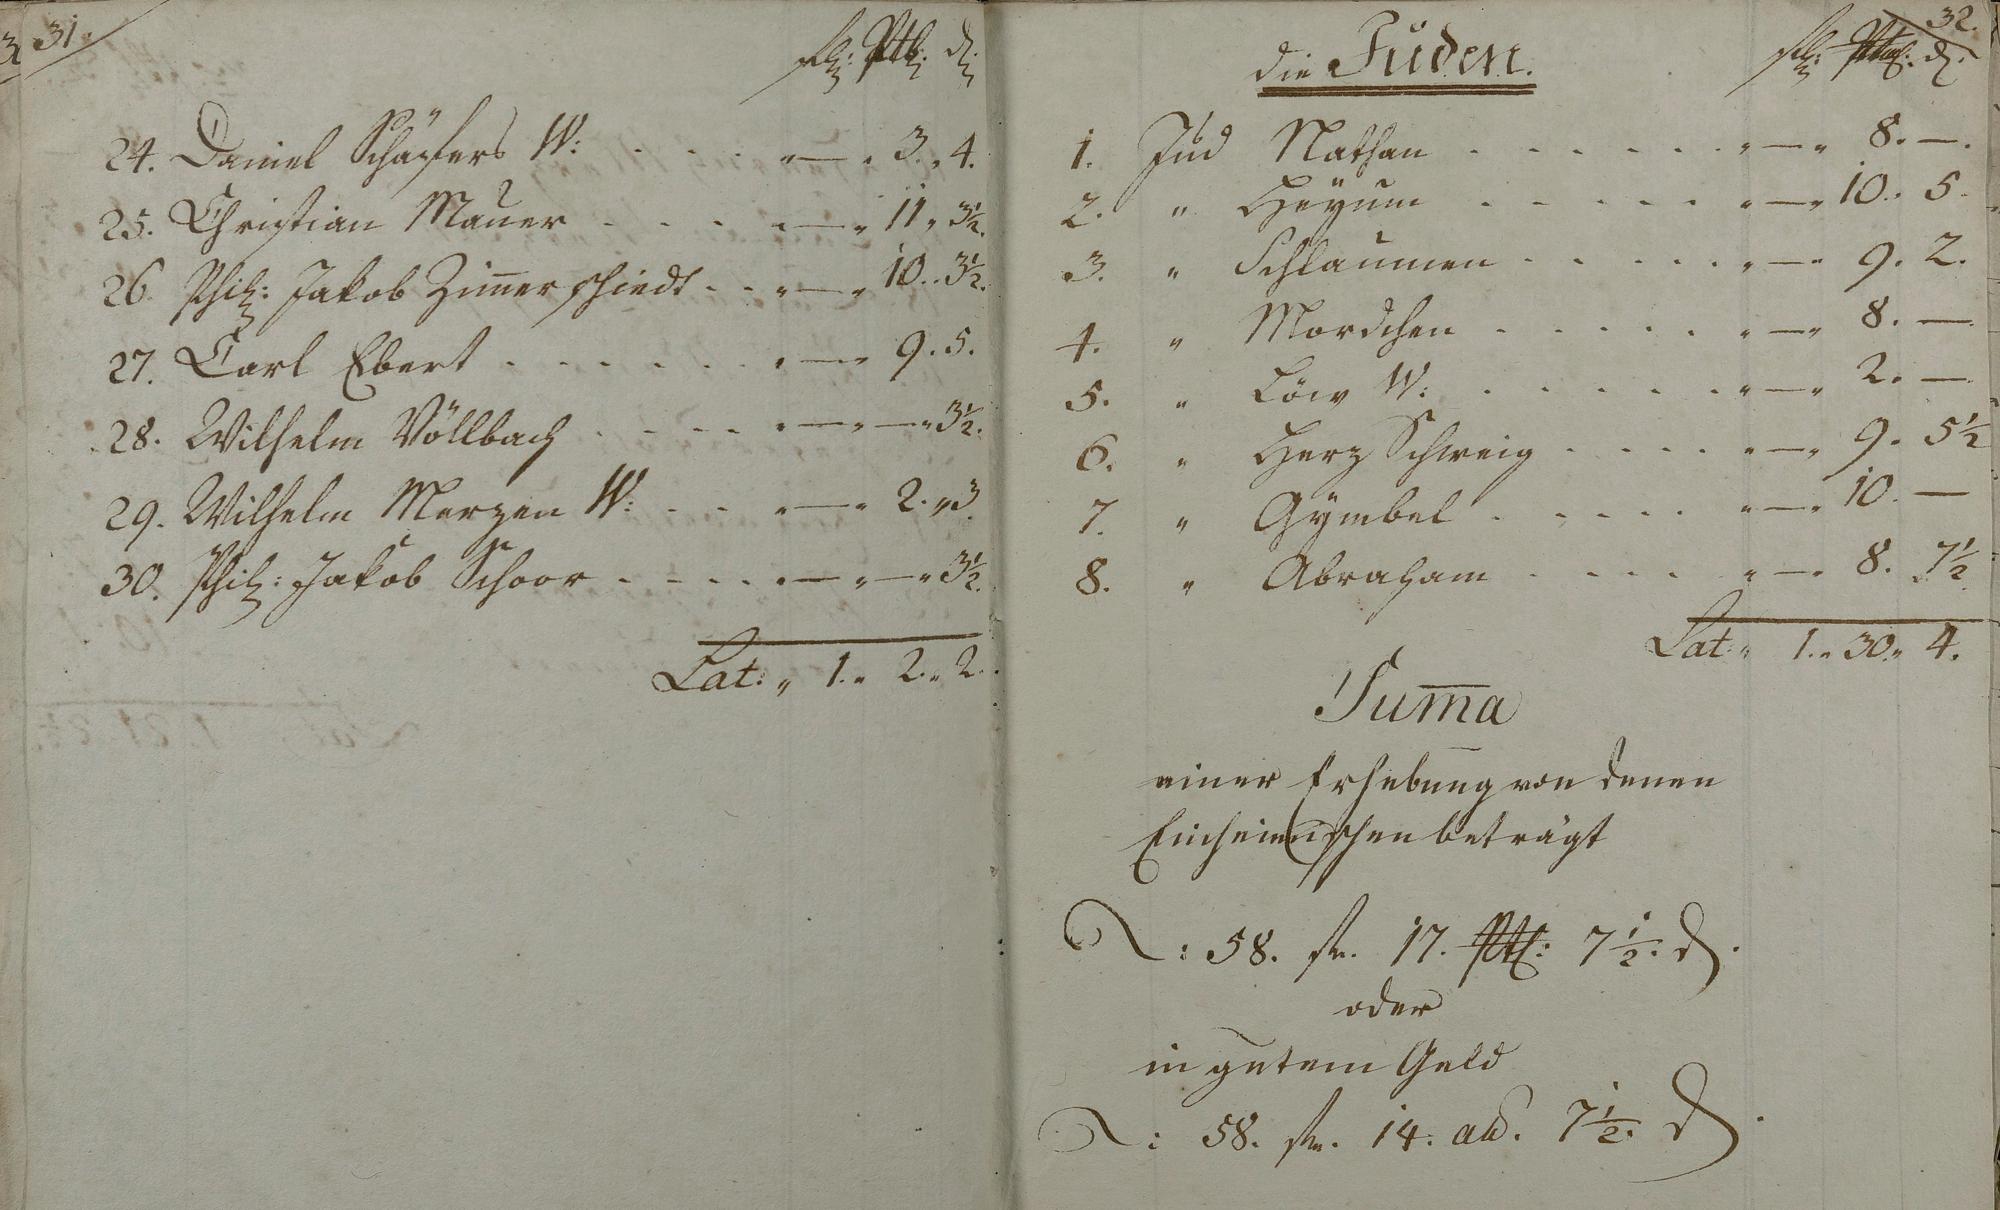 31.
fl: d:
24. Daniel Schäfers W: . . . „ — „ 3. „ 4.
25. Christian Maurer . . . . „ — „ 11 „ 3½.
26. Phil: Jakob Zim̅erschiedt . . „ — „ 10. „ 3½.
27. Carl Ebert . . . . . . „ — „ 9. 5.
28. Wilhelm Völlbach . . . . „ — „ — „ 3½.
29. Wilhelm Merzen W: . . „ — „ 2. „ 3
30. Phil: Jakob Schoor . . . . „ — „ — „ 3½.
Lat: „ 1. „ 2. „ 2.
32.
die Juden.
fl: d.
1. Jud Nathan . . . . . . „ — „ 8. —.
2. „ Heyum . . . . . „ — „ 10. 5.
3. „ Schlaumen . . . . . „ — „ 9. 2.
4. „ Mordchen . . . . . „ — „ 8. —.
5. „ Löw W: . . . . . „ — „ 2. —
6. „ Herz Schweig . . . . „ — „ 9. 5½
7. „ Gÿmbel . . . . . „ — „ 10. —
8. „ Abraham . . . . „ — „ 8. 7½
Lat: „ 1. „ 30. „ 4.
Sum̅a
einer Erhebung von denen
Einheimischen beträgt
: 58. fl. 17. 7½. d.
oder
in gutem Geld
: 58. fl. 14. alb. 7½. d.